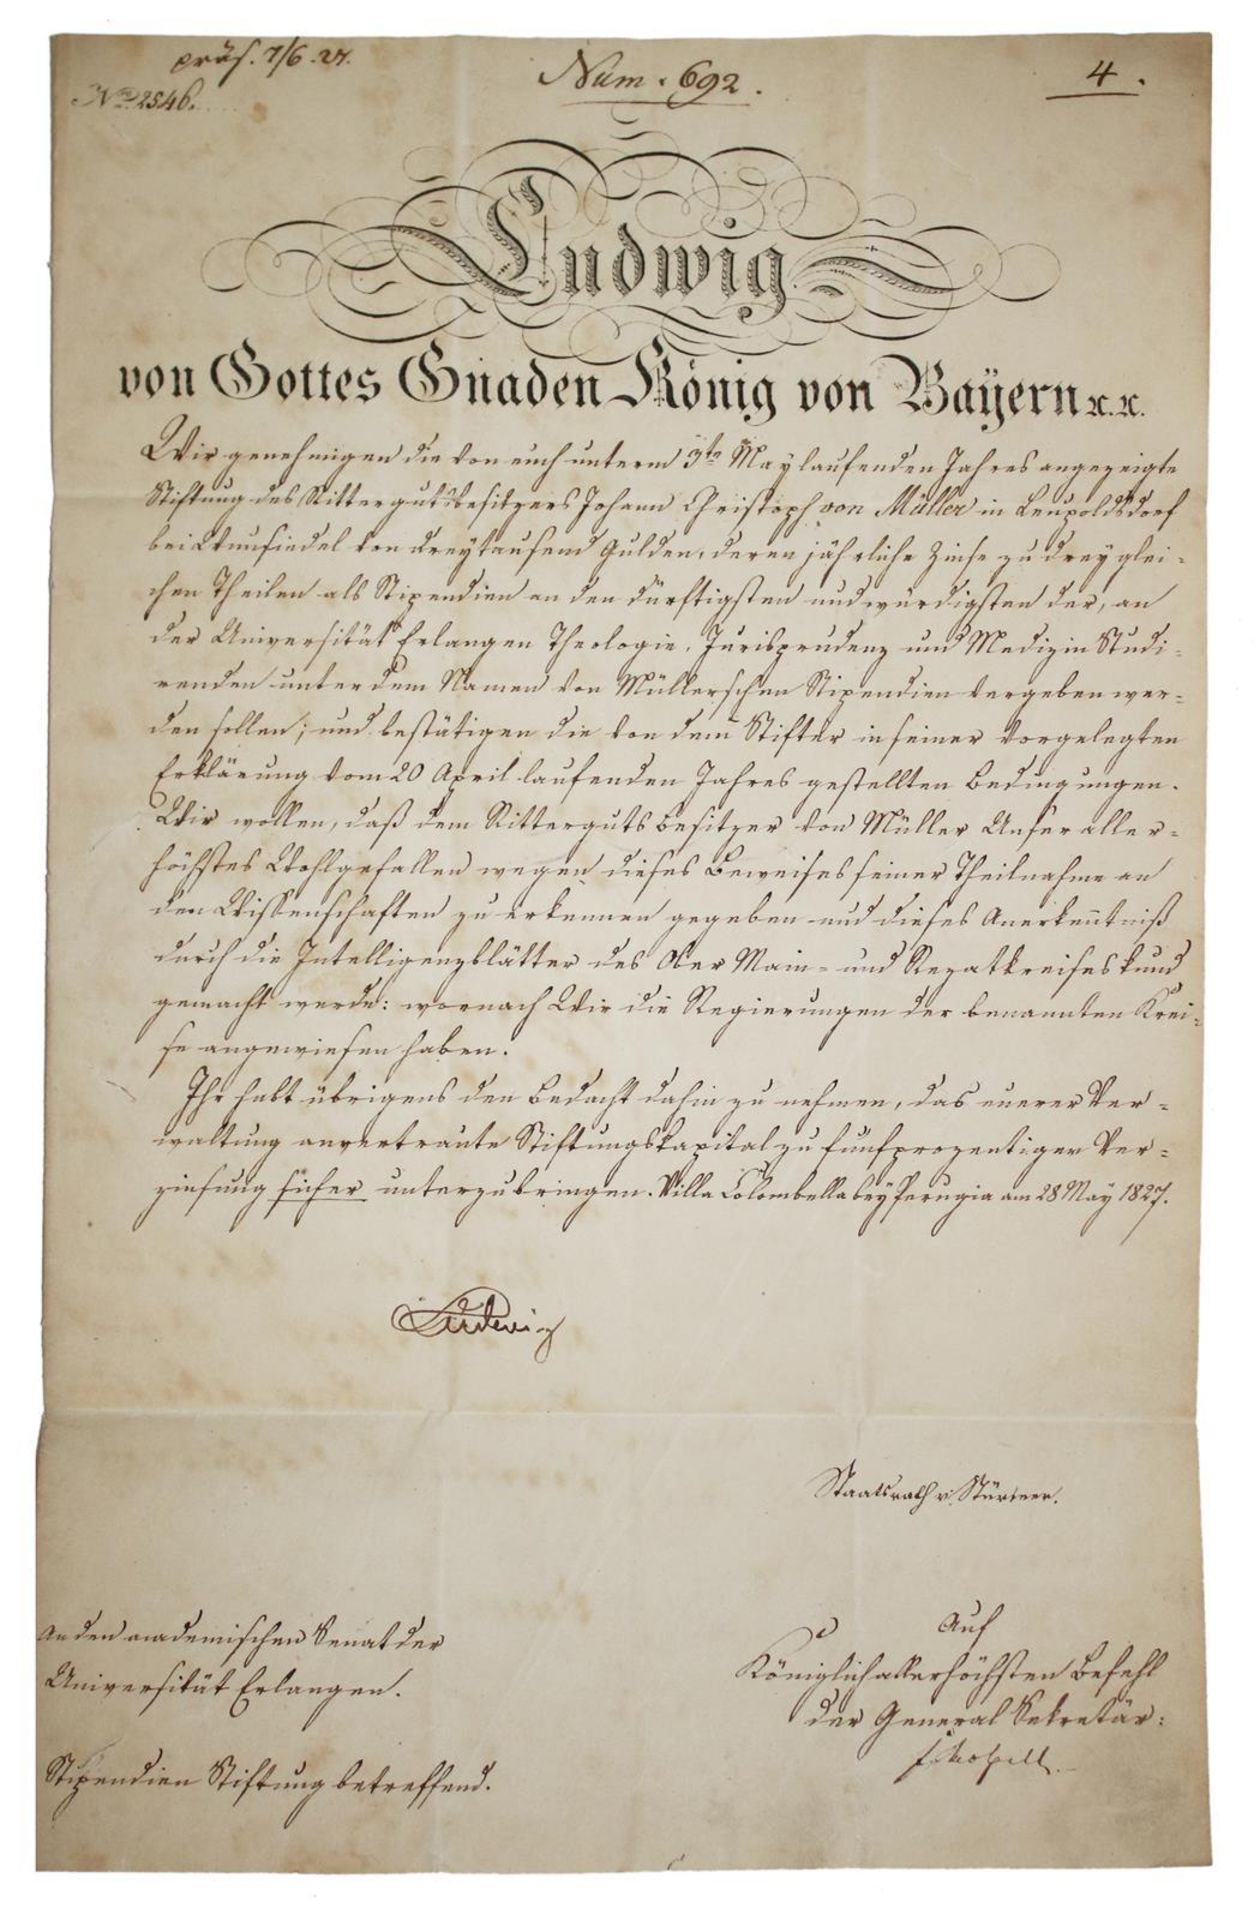 präs. 7/6. 27.
Num. 692.
4.
No. 2546.
Ludwig
von Gottes Gnaden König von Bayern ꝛc. ꝛc.
Wir genehmigen die von euch unterm 3ten May laufenden Jahres angezeigte
Stiftung des Rittergutsbesitzers Johann Christoph von Müller in Leupoldsdorf
bei Wunsiedel von dreytausend Gulden, deren jährliche Zinse zu drey glei-
chen Theilen als Stipendien an den dürftigsten und würdigsten der, an
der Universität Erlangen Theologie, Jurisprudenz und Medizin Studi-
renden unter dem Namen von Müllerschen Stipendien vergeben wer-
den sollen; und bestätigen die von dem Stifter in seiner vorgelegten
Erklärung vom 20 April laufenden Jahres gestellten Bedingungen.
Wir wollen, daß dem Rittergutsbesitzer von Müller Unser aller-
höchstes Wohlgefallen wegen dieses Beweises seiner Theilnahme an
den Wissenschaften zu erkennen gegeben und dieses Anerkenntniß
durch die Intelligenzblätter des Ober Main- und Rezatkreises kund
gemacht werde: wornach Wir die Regierungen der benannten Krei-
se angewiesen haben.
Ihr habt übrigens den Bedacht dahin zu nehmen, das euerer Ver-
waltung anvertraute Stiftungskapital zu fünfprozentiger Ver-
zinsung sicher unterzubringen. Villa Colombella bey Perugia am 28 May 1827.
Ludwig
Staatsrath v. Stürmer.
An den academischen Senat der
Universität Erlangen.
Stipendien Stiftung betreffend.
Auf
Königlich allerhöchsten Befehl
der General Sekretär: